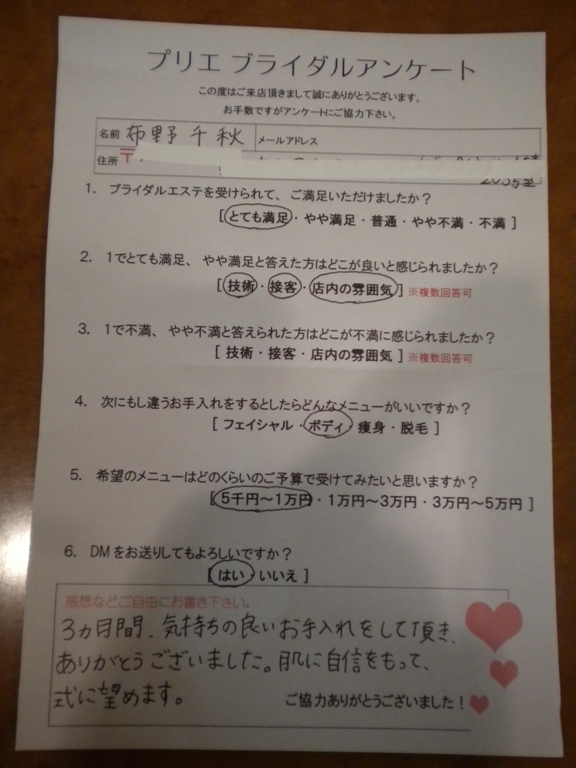 プリエ ブライダルアンケート
この度はご来店頂きまして誠にありがとうございます。
お手数ですがアンケートにご協力下さい。
名前 布野 千秋 メールアドレス
住所 〒
205号室
1. ブライダルエステを受けられて、ご満足いただけましたか？
[ とても満足・やや満足・普通・やや不満・不満 ]
2. 1でとても満足、やや満足と答えた方はどこが良いと感じられましたか？
[ 技術・接客・店内の雰囲気 ] ※複数回答可
3. 1で不満、やや不満と答えられた方はどこが不満に感じられましたか？
[ 技術・接客・店内の雰囲気 ] ※複数回答可
4. 次にもし違うお手入れをするとしたらどんなメニューがいいですか？
[ フェイシャル・ボディ・痩身・脱毛 ]
5. 希望のメニューはどのくらいのご予算で受けてみたいと思いますか？
[ 5千円～1万円・1万円～3万円・3万円～5万円 ]
6. DMをお送りしてもよろしいですか？
[ はい・いいえ ]
感想などご自由にお書き下さい。
3ヵ月間、気持ちの良いお手入れをして頂き、
ありがとうございました。肌に自信をもって、
式に望めます。
ご協力ありがとうございました！